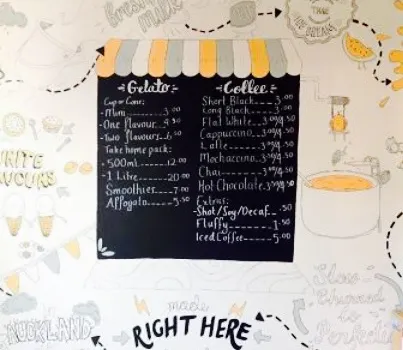 Fresh
Milk
THAN
Gelato
Cup or Cone:
- Mini 3.00
- One flavour
- Two flavours
Take home pack:
- 500ml 12.00
- 1 Litre 20.00
Smoothies 7.00
Affogato 5.50
Coffee
Short Black 3.00
Long Black 3.00
Flat White 3.90/4.50
Cappuccino 3.90/4.50
Latte 3.90/4.50
Mochaccino 3.90/4.50
Chai 3.90/4.50
Hot Chocolate 3.90/4.50
Extras:
- Shot/Soy/Decaf .50
Fluffy 1.50
Iced Coffee 5.00
AVOURS
AUCKLAND
made
RIGHT HERE
Slow
Churned
to
Perfection